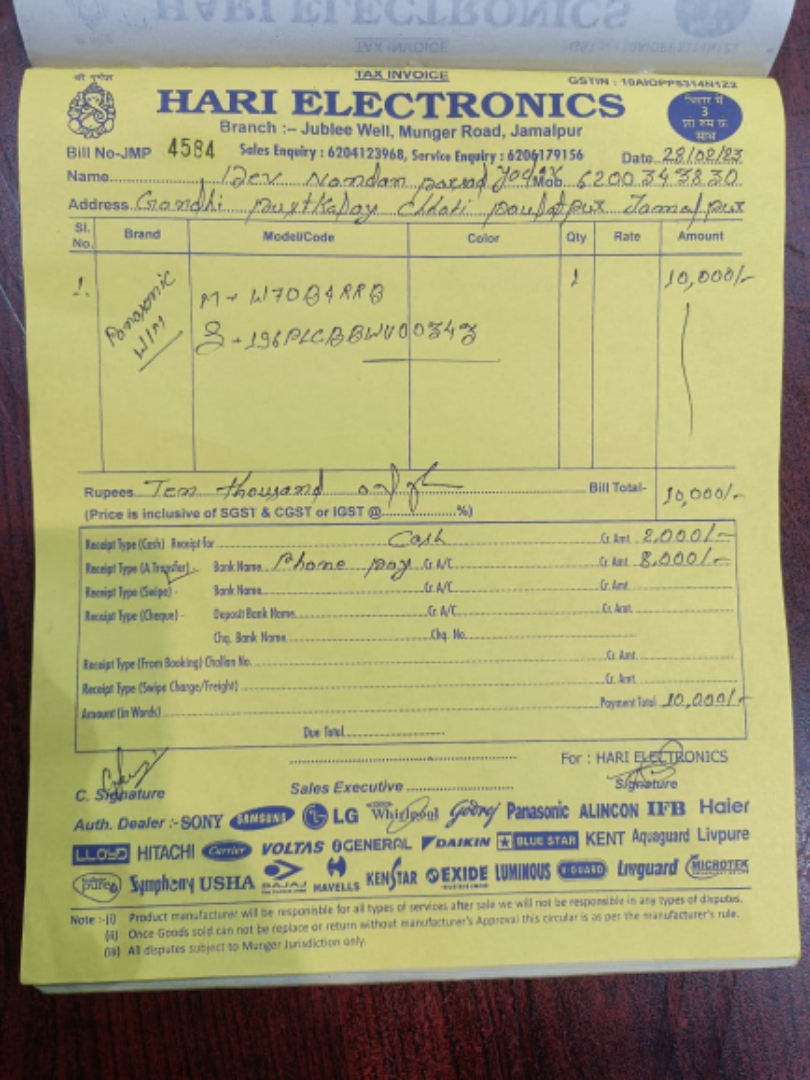 HARI ELECTRONICS
TAX INVOICE
श्री गणेश
TAX INVOICE
GSTIN : 10AIOPP5314N1Z2
HARI ELECTRONICS
3
साथ
Branch :– Jublee Well, Munger Road, Jamalpur
Bill No-JMP 4584 Sales Enquiry : 6204123968, Service Enquiry : 6206179156 Date 28/02/23
Name Dev Nandan parsad Yadav Mob 6200343830
Address Gandhi pustkalay Chhoti Jamalpur
Sl. No. Brand Model/Code Color Qty Rate Amount
1. Panasonic W/M M - W70B4RRB 1 10,000/-
S - 196PLCBBWV00343
Rupees Ten thousand only Bill Total- 10,000/-
(Price is inclusive of SGST & CGST or IGST @ %)
Receipt Type (Cash) Receipt for Cash Cr Amt 2,000/-
Receipt Type (A.Transfer) - Bank Name Phone pay Cr A/C Cr Amt 8,000/-
Receipt Type (Swipe) - Bank Name Cr A/C Cr Amt
Receipt Type (Cheque) - Deposit Bank Name Cr A/C Cr Amt
Chq. Bank Name Chq. No.
Receipt Type (From Booking) Challan No. Cr Amt
Receipt Type (Swipe Charge/Freight) Cr Amt
Amount (in Words) Payment Total 10,000/-
Due Total
For : HARI ELECTRONICS
C. Signature Sales Executive Signature
Auth. Dealer :- SONY SAMSUNG LG Whirlpool Godrej Panasonic ALINCON IFB Haier
LLOYD HITACHI Carrier VOLTAS OGENERAL DAIKIN BLUE STAR KENT Aquaguard Livpure
pureit Symphony USHA BAJAJ HAVELLS KENSTAR EXIDE LUMINOUS V-GUARD Livguard MICROTEK
Note :-(i) Product manufacturer will be responisble for all types of services after sale we will not be responsible in any types of disputes.
(ii) Once Goods sold can not be replace or return without manufacturer's Approval this circular is as per the manufacturer's rule.
(iii) All disputes subject to Munger Jurisdiction only.